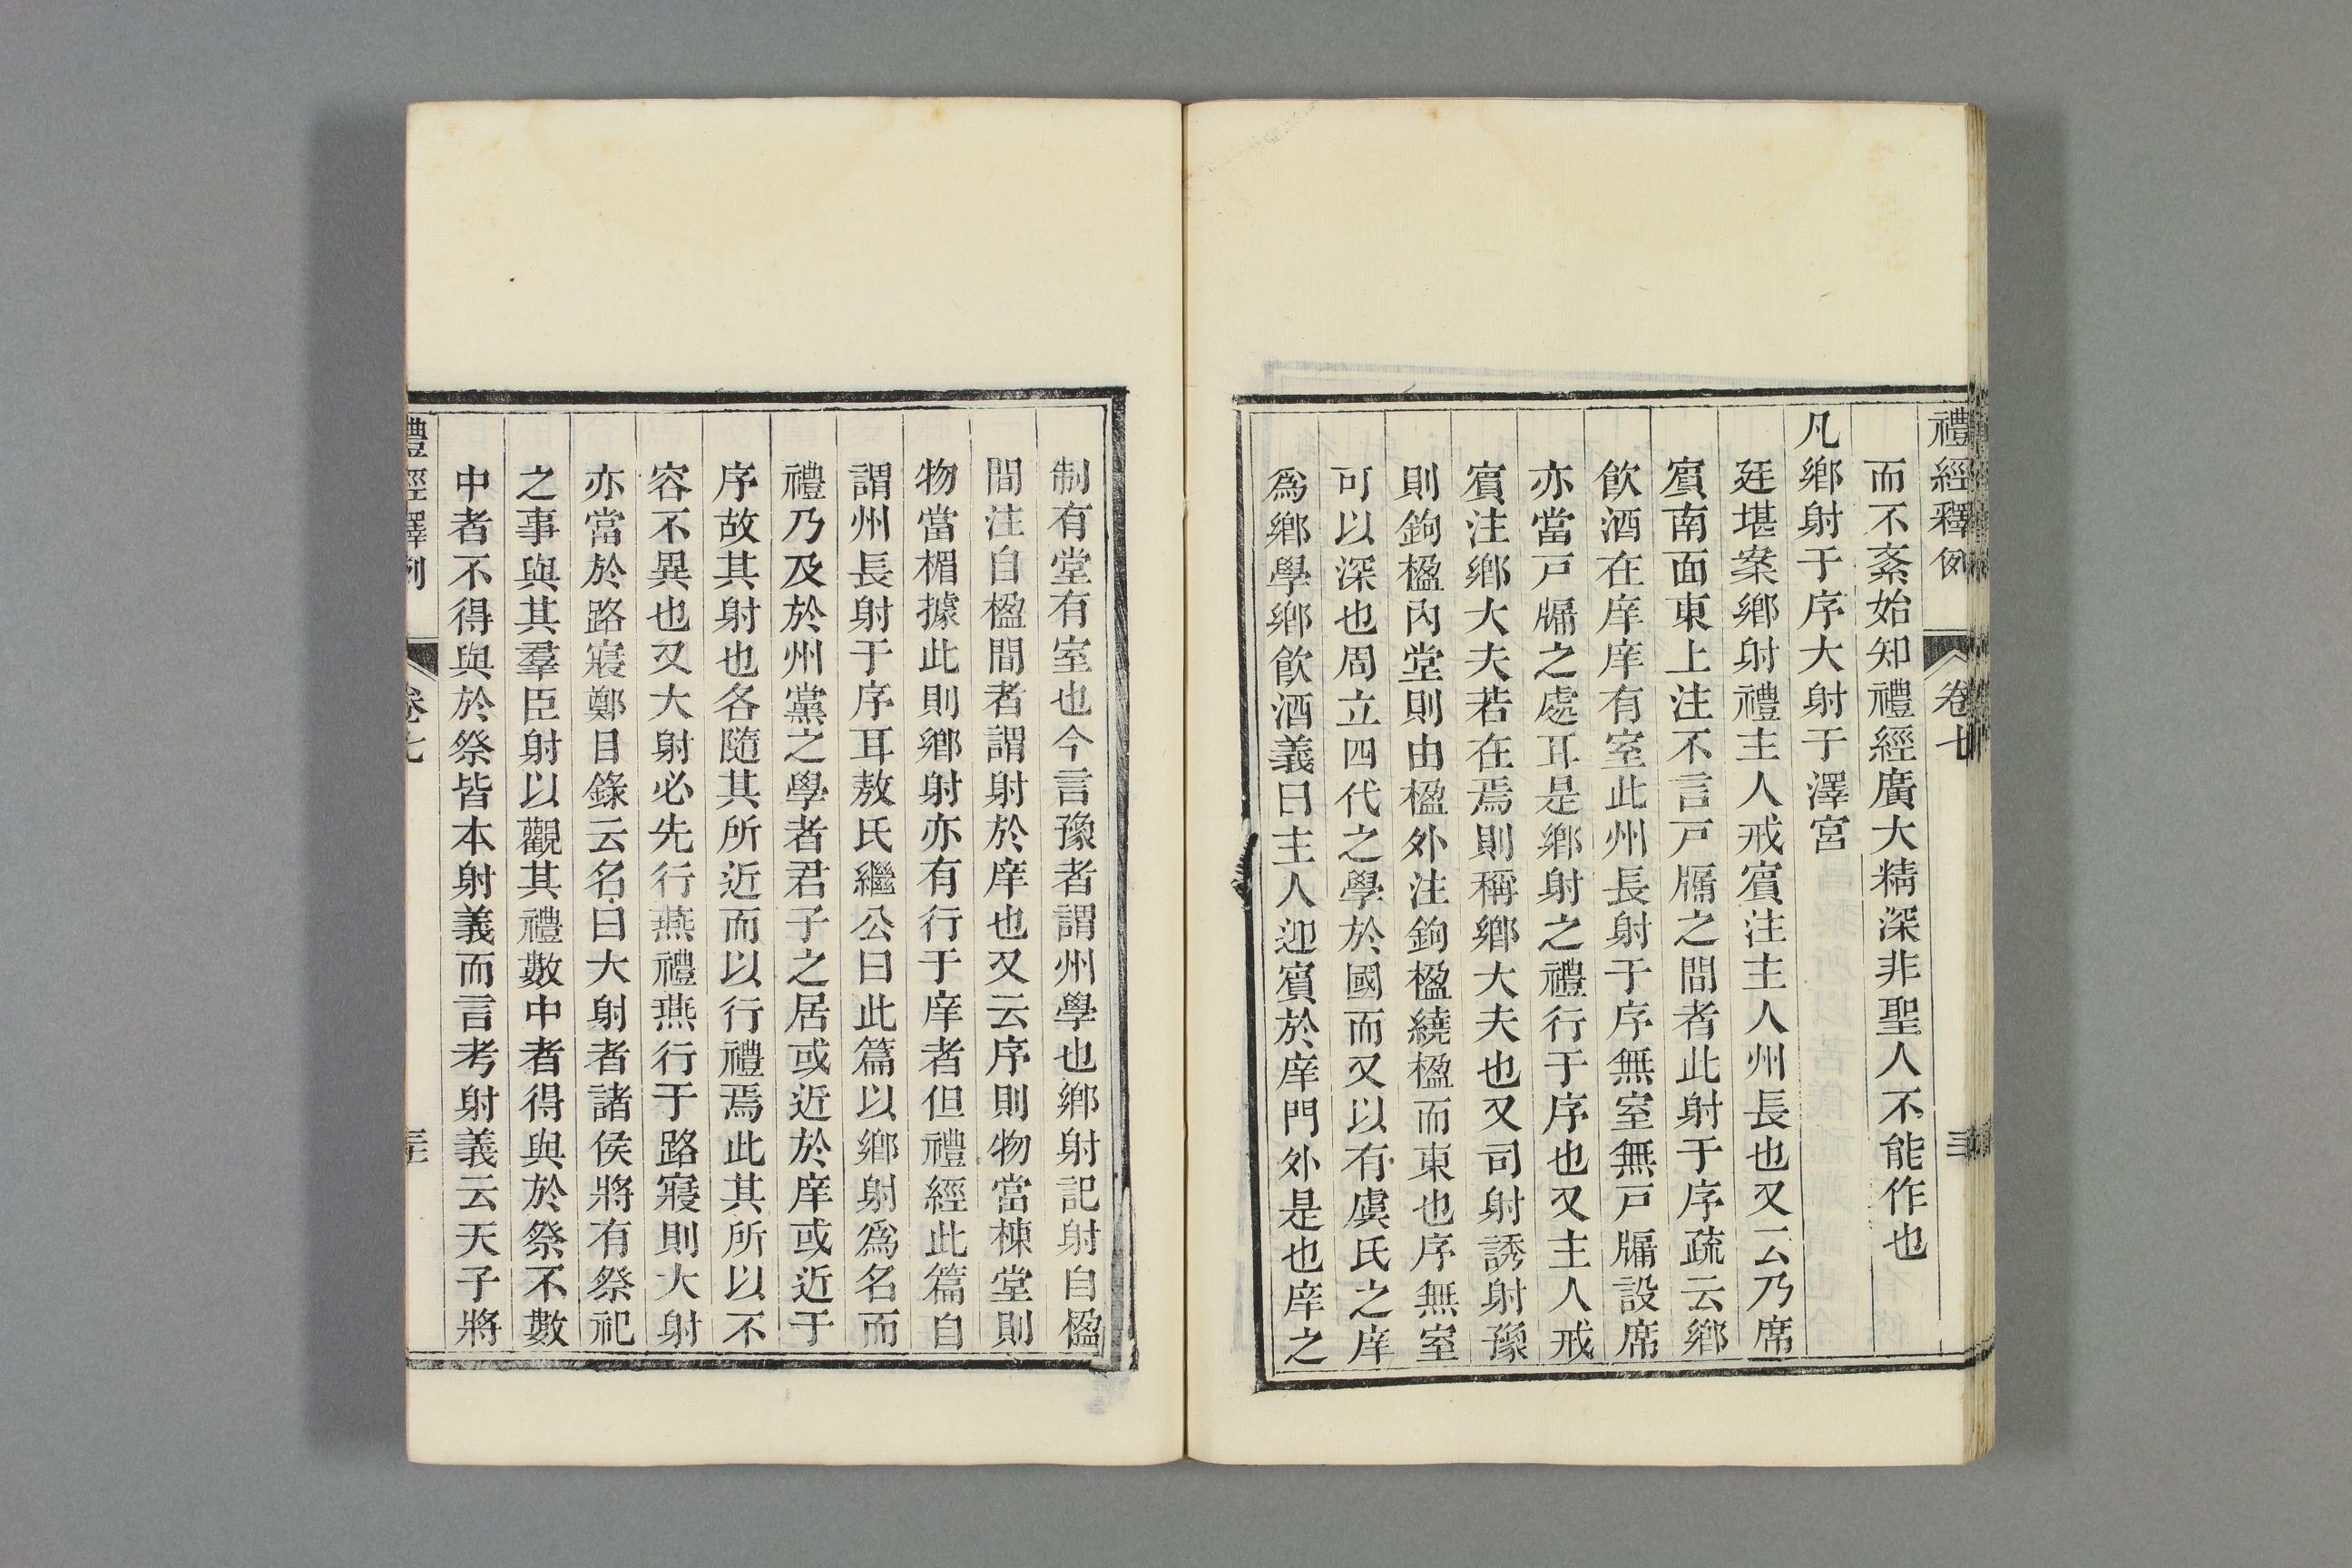 禮經釋例 卷七
而不紊始知禮經廣大精深非聖人不能作也
凡鄉射于序大射于澤宮
廷堪案鄉射禮主人戒賓注主人州長也又云乃席
賓南面東上注不言戸牖之間者此射于序疏云鄉
飲酒在庠庠有室此州長射于序無室無戸牖設席
亦當戸牖之處耳是鄉射之禮行于序也又主人戒
賓注鄉大夫若在焉則稱鄉大夫也又司射誘射豫
則鉤楹內堂則由楹外注鉤楹繞楹而東也序無室
可以深也周立四代之學於國而又以有虞氏之庠
爲鄉學鄉飲酒義曰主人迎賓於庠門外是也庠之
制有堂有室也今言豫者謂州學也鄉射記射自楹
間注自楹間者謂射於庠也又云序則物當棟堂則
物當楣據此則鄉射亦有行于庠者但禮經此篇自
謂州長射于序耳敖氏繼公曰此篇以鄉射爲名而
禮乃及於州黨之學者君子之居或近於庠或近于
序故其射也各隨其所近而以行禮焉此其所以不
容不異也又大射必先行燕禮燕行于路寢則大射
亦當於路寢鄭目錄云名曰大射者諸侯將有祭祀
之事與其羣臣射以觀其禮數中者得與於祭不數
中者不得與於祭皆本射義而言考射義云天子將
禮經釋例 卷七